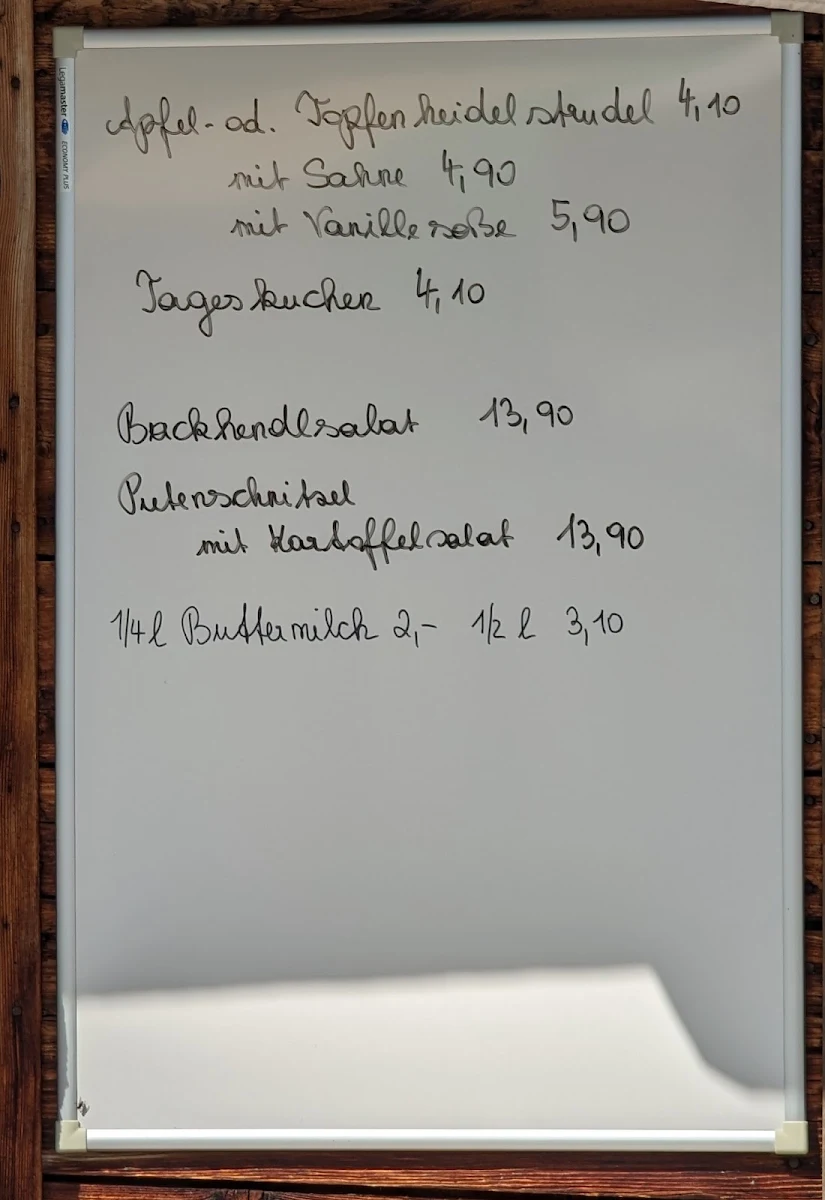 Apfel- od. Topfenheidelstrudel 4,10
mit Sahne 4,90
mit Vanillesoße 5,90
Tageskuchen 4,10
Backhendlsalat 13,90
Putenschnitzel
mit Kartoffelsalat 13,90
1/4 l Buttermilch 2,- 1/2 l 3,10
Legamaster ECONOMY PLUS